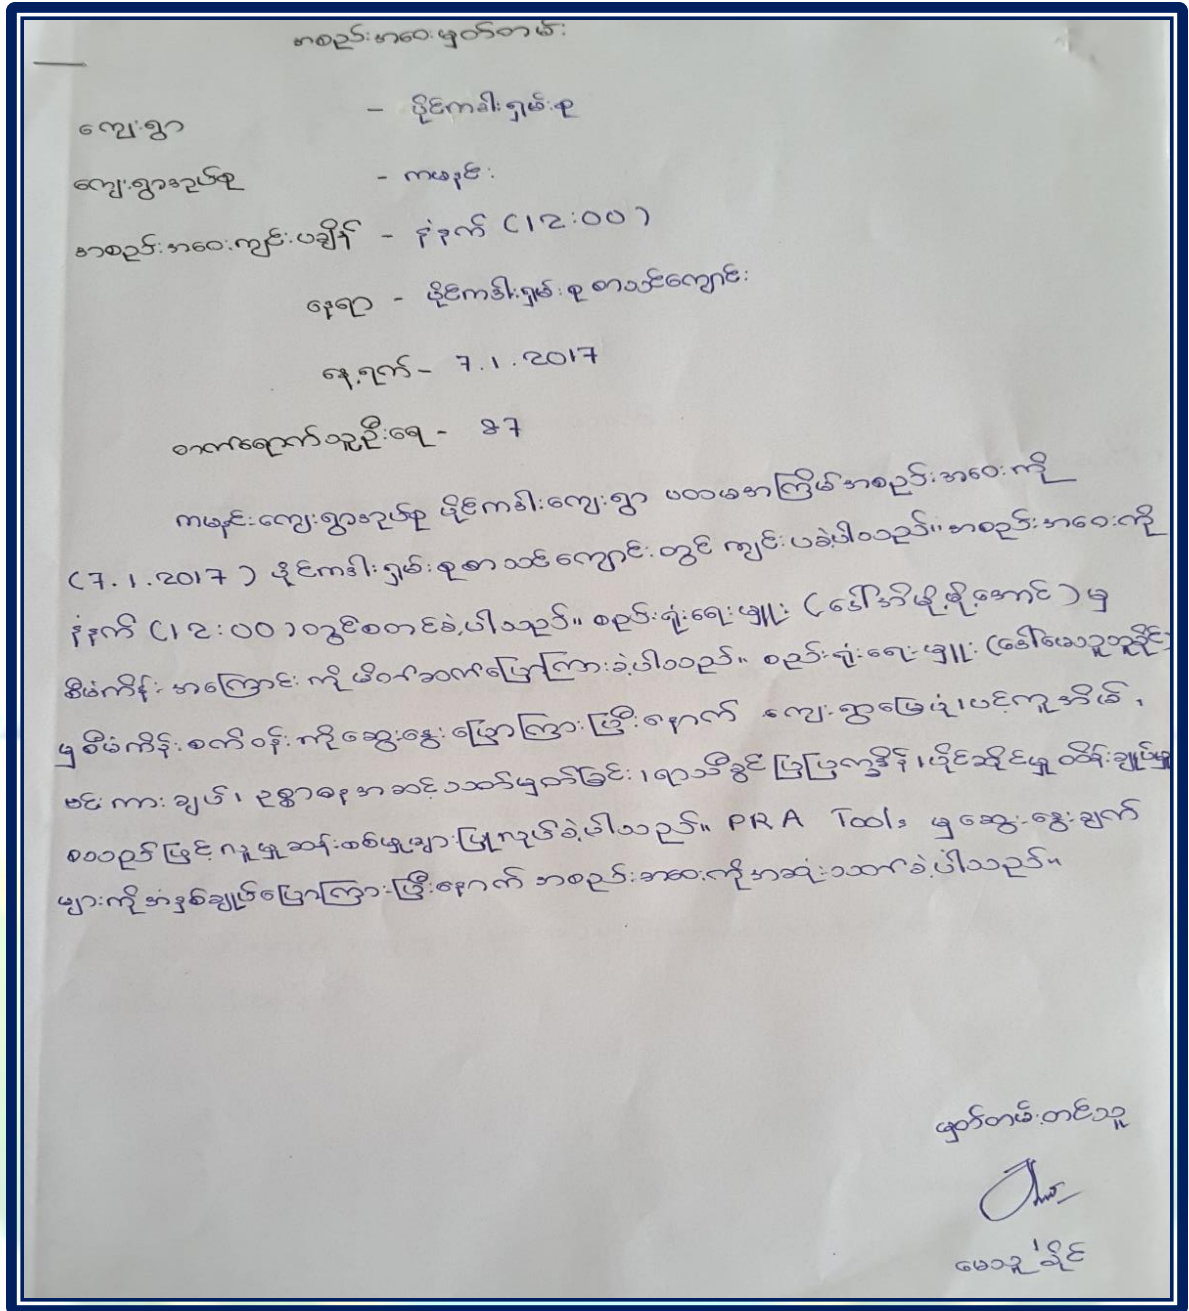 အစည်းအဝေးမှတ်တမ်း
ကျေးရွာ - ပိုင်ကဒါးရှမ်းစု
ကျေးရွာအုပ်စု - ကမနင်း
အစည်းအဝေးကျင်းပချိန် - နံနက် (12:00)
နေရာ - ပိုင်ကဒါးရှမ်းစုစာသင်ကျောင်း
နေ့ရက် - 7.1.2017
တက်ရောက်သူဦးရေ - 87
ကမနင်းကျေးရွာအုပ်စု ပိုင်ကဒါးကျေးရွာ ပထမအကြိမ်အစည်းအဝေးကို
(7.1.2017) ပိုင်ကဒါးရှမ်းစုစာသင်ကျောင်းတွင် ကျင်းပခဲ့ပါသည်။ အစည်းအဝေးကို
နံနက် (12:00) တွင်စတင်ခဲ့ပါသည်။ စည်းရုံးရေးမှူး (ဒေါ်အိမို့မို့အောင်) မှ
စီမံကိန်းအကြောင်းကို မိတ်ဆက်ပြောကြားခဲ့ပါသည်။ စည်းရုံးရေးမှူး (ဒေါ်မေသူထူးခိုင်)
မှစီမံကိန်းစက်ဝန်းကိုဆွေးနွေးပြောကြားပြီးနောက် ကျေးရွာမြေပုံ၊ ပင့်ကူအိမ်၊
ဗင်းကားချပ်၊ ဥစ္စာဓနအဆင့်သတ်မှတ်ခြင်း၊ ရာသီခွင်ပြပြက္ခဒိန်၊ ပိုင်ဆိုင်မှုထိန်းချုပ်မှု
စသည်ဖြင့် လူမှုဆန်းစစ်မှုများပြုလုပ်ခဲ့ပါသည်။ PRA Tools မှဆွေးနွေးချက်
များကိုအနှစ်ချုပ်ပြောကြားပြီးနောက် အစည်းအဝေးကိုအဆုံးသတ်ခဲ့ပါသည်။
မှတ်တမ်းတင်သူ
မေသူခိုင်